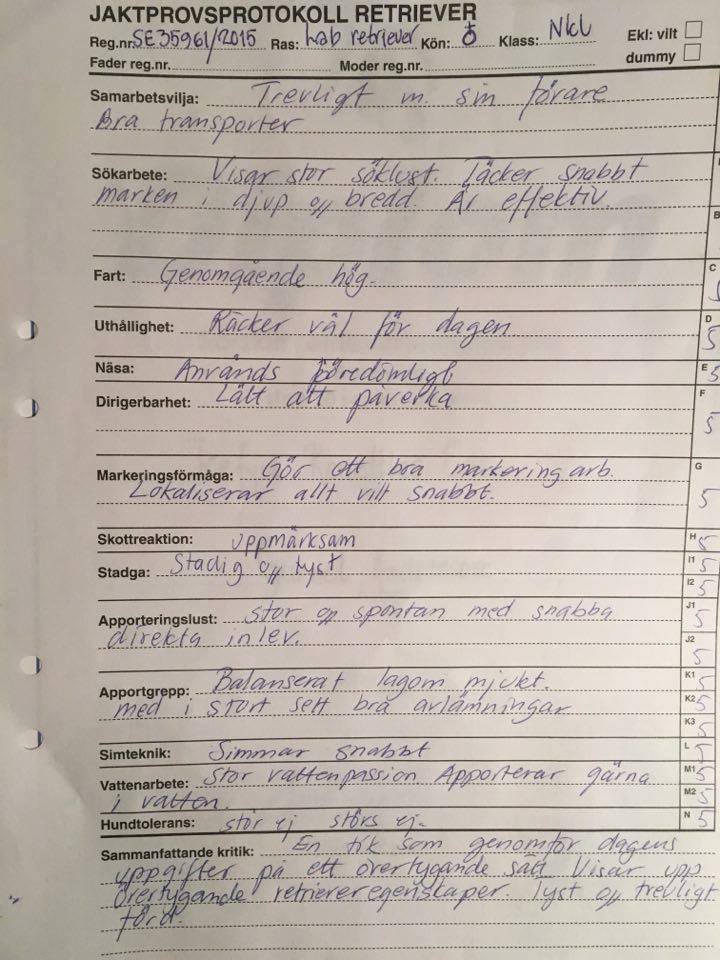 JAKTPROVSPROTOKOLL RETRIEVER
Reg.nr. SE35961/2015 Ras: Lab retriever Kön: Klass: Nkl Ekl: vilt
Fader reg.nr. Moder reg.nr. dummy
Samarbetsvilja: Trevligt m. sin förare
Bra transporter
Sökarbete: Visar stor söklust. Täcker snabbt
marken i djup o bredd. Är effektiv.
B
Fart: Genomgående hög. C
Uthållighet: Räcker väl för dagen D 5
Näsa: Används föredömligt E 5
Dirigerbarhet: Lätt att påverka F
5
Markeringsförmåga: Gör ett bra markering arb. G
Lokaliserar allt vilt snabbt. 5
Skottreaktion: uppmärksam H 5
Stadga: Stadig o tyst I1 5
I2 5
Apporteringslust: stor o spontan med snabba J1 5
direkta inlev. J2 5
Apportgrepp: Balanserat lagom mjukt. K1 5
med i stort sett bra avlämningar K2 5
K3
Simteknik: Simmar snabbt L 5
Vattenarbete: stor vattenpassion Apporterar gärna M1 5
i vatten. M2 5
Hundtolerans: stör ej störs ej. N 5
Sammanfattande kritik: En tik som genomför dagens
uppgifter på ett övertygande sätt Visar upp
övertygande retrieveregenskaper. Tyst o trevligt
förd.